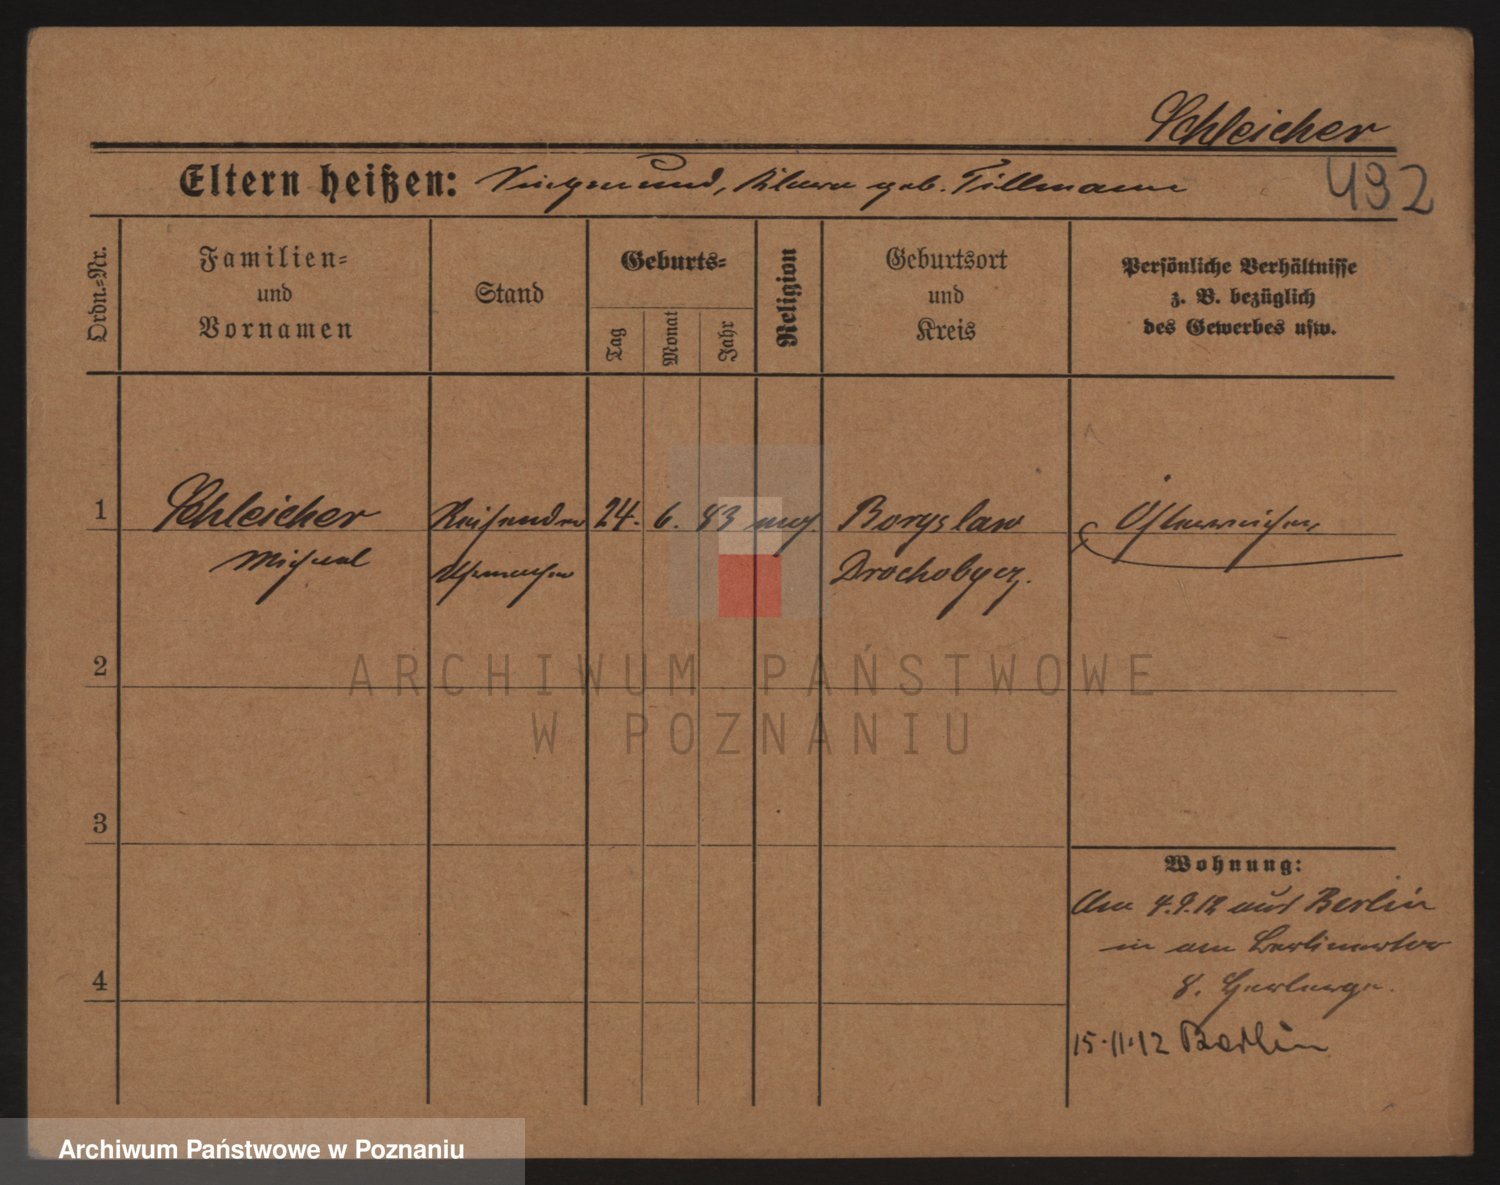 Schleicher
Eltern heißen: geb. Tillmann
492
Ordn.-Nr.
Familien-
und
Vornamen
Stand
Geburts-
Tag
Monat
Jahr
Religion
Geburtsort
und
Kreis
Persönliche Verhältnisse
z. B. bezüglich
des Gewerbes usw.
1 Schleicher Reisender 24. 6. 83 Boryslaw Österreicher
Michael Drohobycz.
2
3
4
Wohnung:
Am 4.9.12 aus Berlin
8.
15.11.12 Berlin
ARCHIWUM PAŃSTWOWE
W POZNANIU
Archiwum Państwowe w Poznaniu